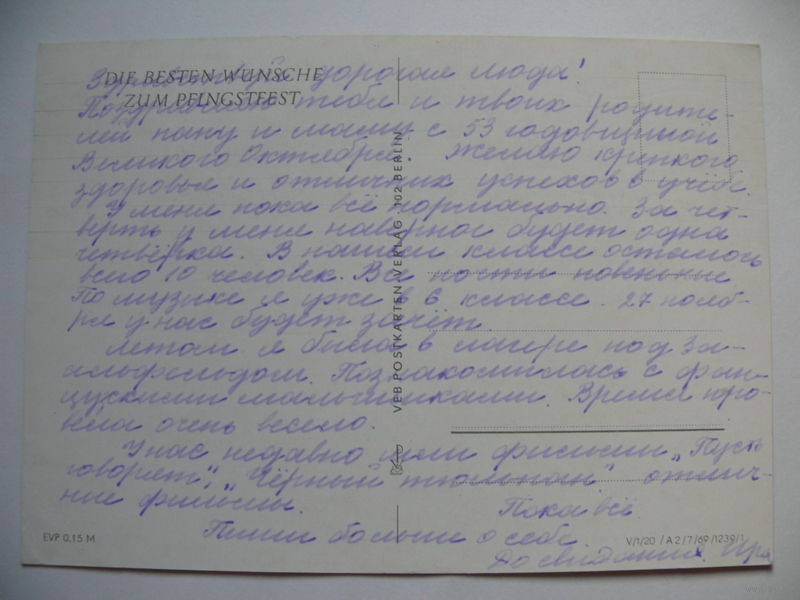 DIE BESTEN WÜNSCHE
ZUM PFINGSTFEST
Здравствуй дорогая Люда!
Поздравляю тебя и твоих родите-
лей папу и маму с 53 годовщиной
Великого Октября. Желаю крепкого
здоровья и отличных успехов в учёбе.
У меня пока всё нормально. За чет-
верть у меня наверное будет одна
четвёрка. В нашем классе осталось
всего 10 человек. Все почти новенькие
По музыке я уже в 6 классе. 27 нояб-
ря у нас будет зачёт.
Летом я была в лагере под За-
альфельдом. Познакомилась с фран-
цускими мальчиками. Время про-
вела очень весело.
У нас недавно шли фильмы „Пусть
говорят", „Чёрный тюльпан" отлич-
ные фильмы.
Пока всё
Пиши больше о себе
До свидания. Ира
VEB POSTKARTEN-VERLAG · 102 BERLIN
EVP 0,15 M
V/1/20 / A 2/7/69 /1239/1